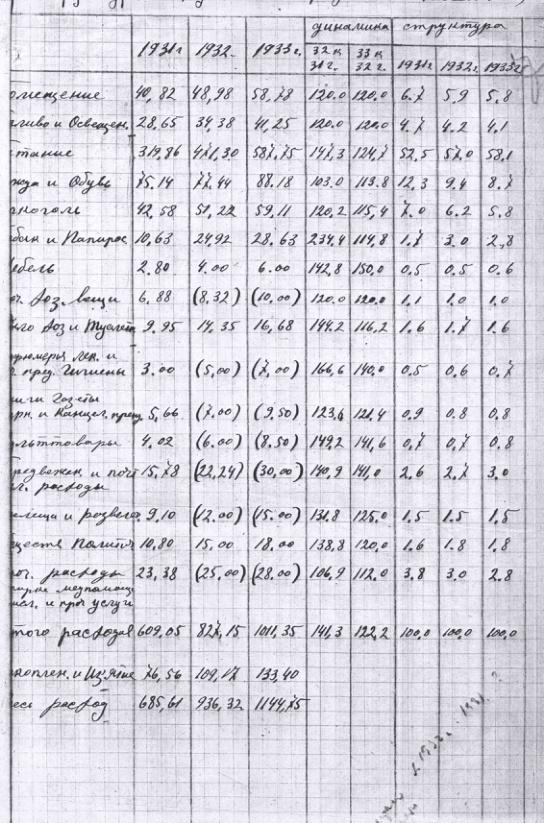 динамика структура
1931г 1932. 1933г. 32 к 31 г. 33 к 32 г. 1931г 1932г 1933г
омещение 40,82 48,98 58,78 120.0 120,0 6.7 5.9 5.8
ливо и Освещен. 28,65 34,38 41,25 120.0 120.0 4.7 4.2 4.1
тание 319,86 471,30 587,75 147,3 124,7 52,5 57,0 58,1
жда и Обувь 75.14 77,44 88.18 103.0 113.8 12,3 9,4 8.7
коголь 42,58 51,22 59,11 120,2 115,4 7.0 6.2 5.8
бак и Папирос 10,63 24,92 28.63 234,4 114,8 1,7 3.0 2,8
ебель 2.80 4.00 6.00 142,8 150,0 0,5 0,5 0.6
оч. хоз. вещи 6,88 (8,32) (10,00) 120.0 120.0 1.1 1,0 1,0
ыло хоз и Туалет 9,95 14,35 16,68 144,2 116,2 1.6 1.7 1.6
рюмерья лек. и
пред. Гигиены 3.00 (5,00) (7,00) 166,6 140,0 0,5 0,6 0,7
ниги Газеты
рн. и Канцел. прин. 5,66 (7.00) (9.50) 123,6 121,4 0,9 0.8 0.8
ульттовары 4,02 (6.00) (8,50) 149,2 141,6 0,7 0,7 0.8
редвежен. и почт 15,78 (22,24) (30,00) 140,9 141,0 2,6 2.7 3.0
л. расходы
елища и развеч. 9,10 (12.00) (15.00) 131,8 125,0 1.5 1.5 1,5
ществ Полити 10,80 15,00 18.00 138,8 120,0 1.6 1.8 1.8
оч. расходы 23,38 (25,00) (28.00) 106,9 112,0 3.8 3.0 2.8
медпомощь
и проч услуги
того расходов 609,05 827,15 1011,35 141,3 122,2 100,0 100,0 100,0
акоплен. и Изъятие 76,56 109,17 133,40
весь расход 685,61 936,32 1144,75